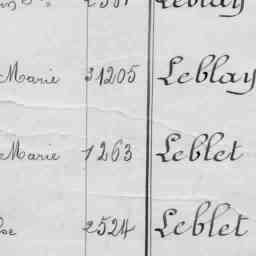 Leblay
Marie 31205 Leblay
Marie 1263 Leblet
2524 Leblet